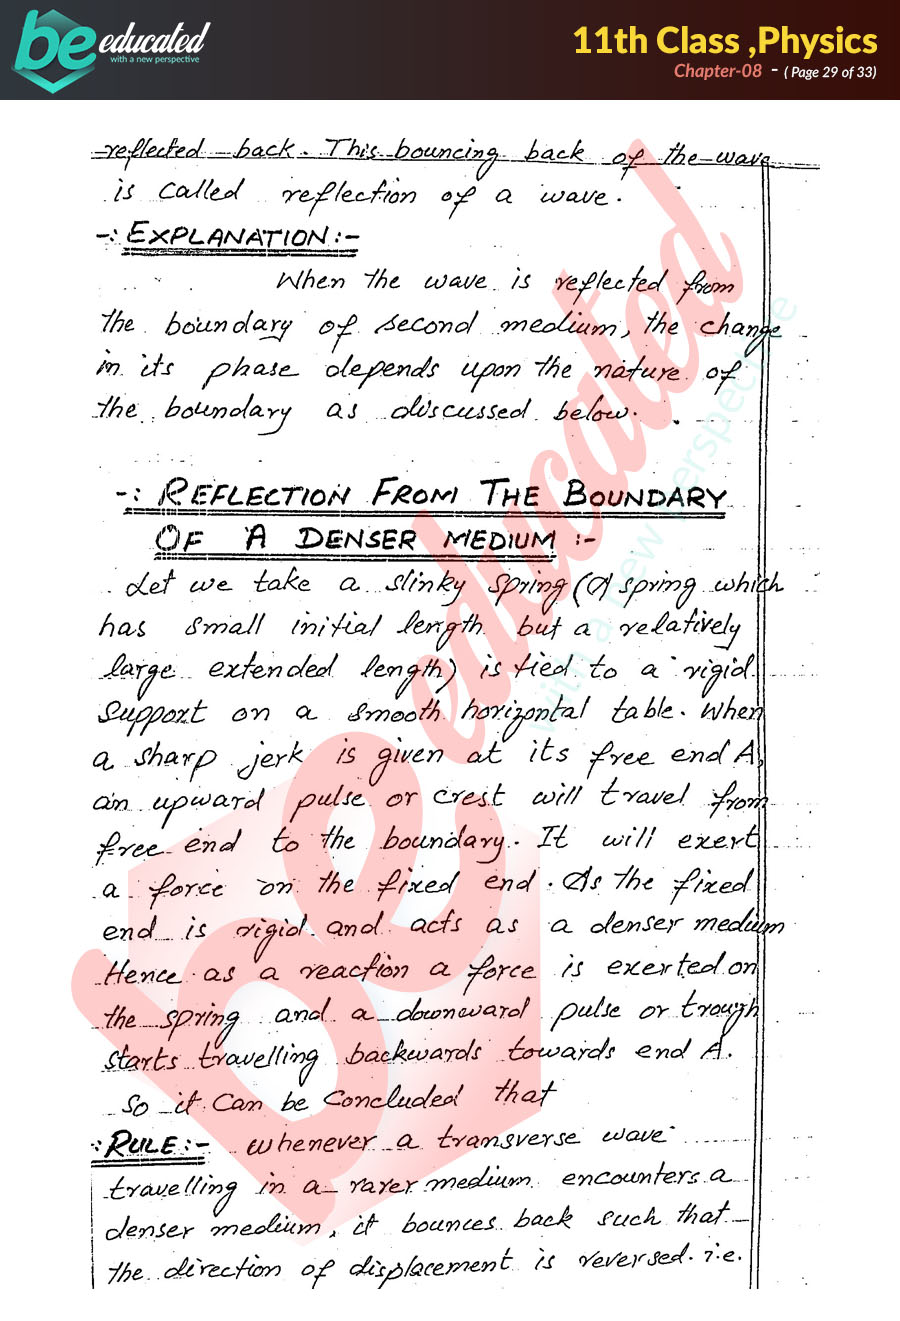 be educated
with a new perspective
11th Class ,Physics
Chapter-08 - ( Page 29 of 33)
reflected back. This bouncing back of the wave
is called reflection of a wave.
-: EXPLANATION:-
When the wave is reflected from
the boundary of second medium, the change
in its phase depends upon the nature of
the boundary as discussed below.
-: REFLECTION FROM THE BOUNDARY
OF A DENSER MEDIUM :-
Let we take a slinky spring (A spring which
has small initial length but a relatively
large extended length) is tied to a rigid
support on a smooth horizontal table. When
a sharp jerk is given at its free end A,
an upward pulse or crest will travel from
free end to the boundary. It will exert
a force on the fixed end. As the fixed
end is rigid and acts as a denser medium
Hence as a reaction a force is exerted on
the spring and a downward pulse or trough
starts travelling backwards towards end A.
So it can be concluded that
:RULE:- whenever a transverse wave
travelling in a rarer medium encounters a
denser medium, it bounces back such that
the direction of displacement is reversed. i.e.
be educated
with a new perspective